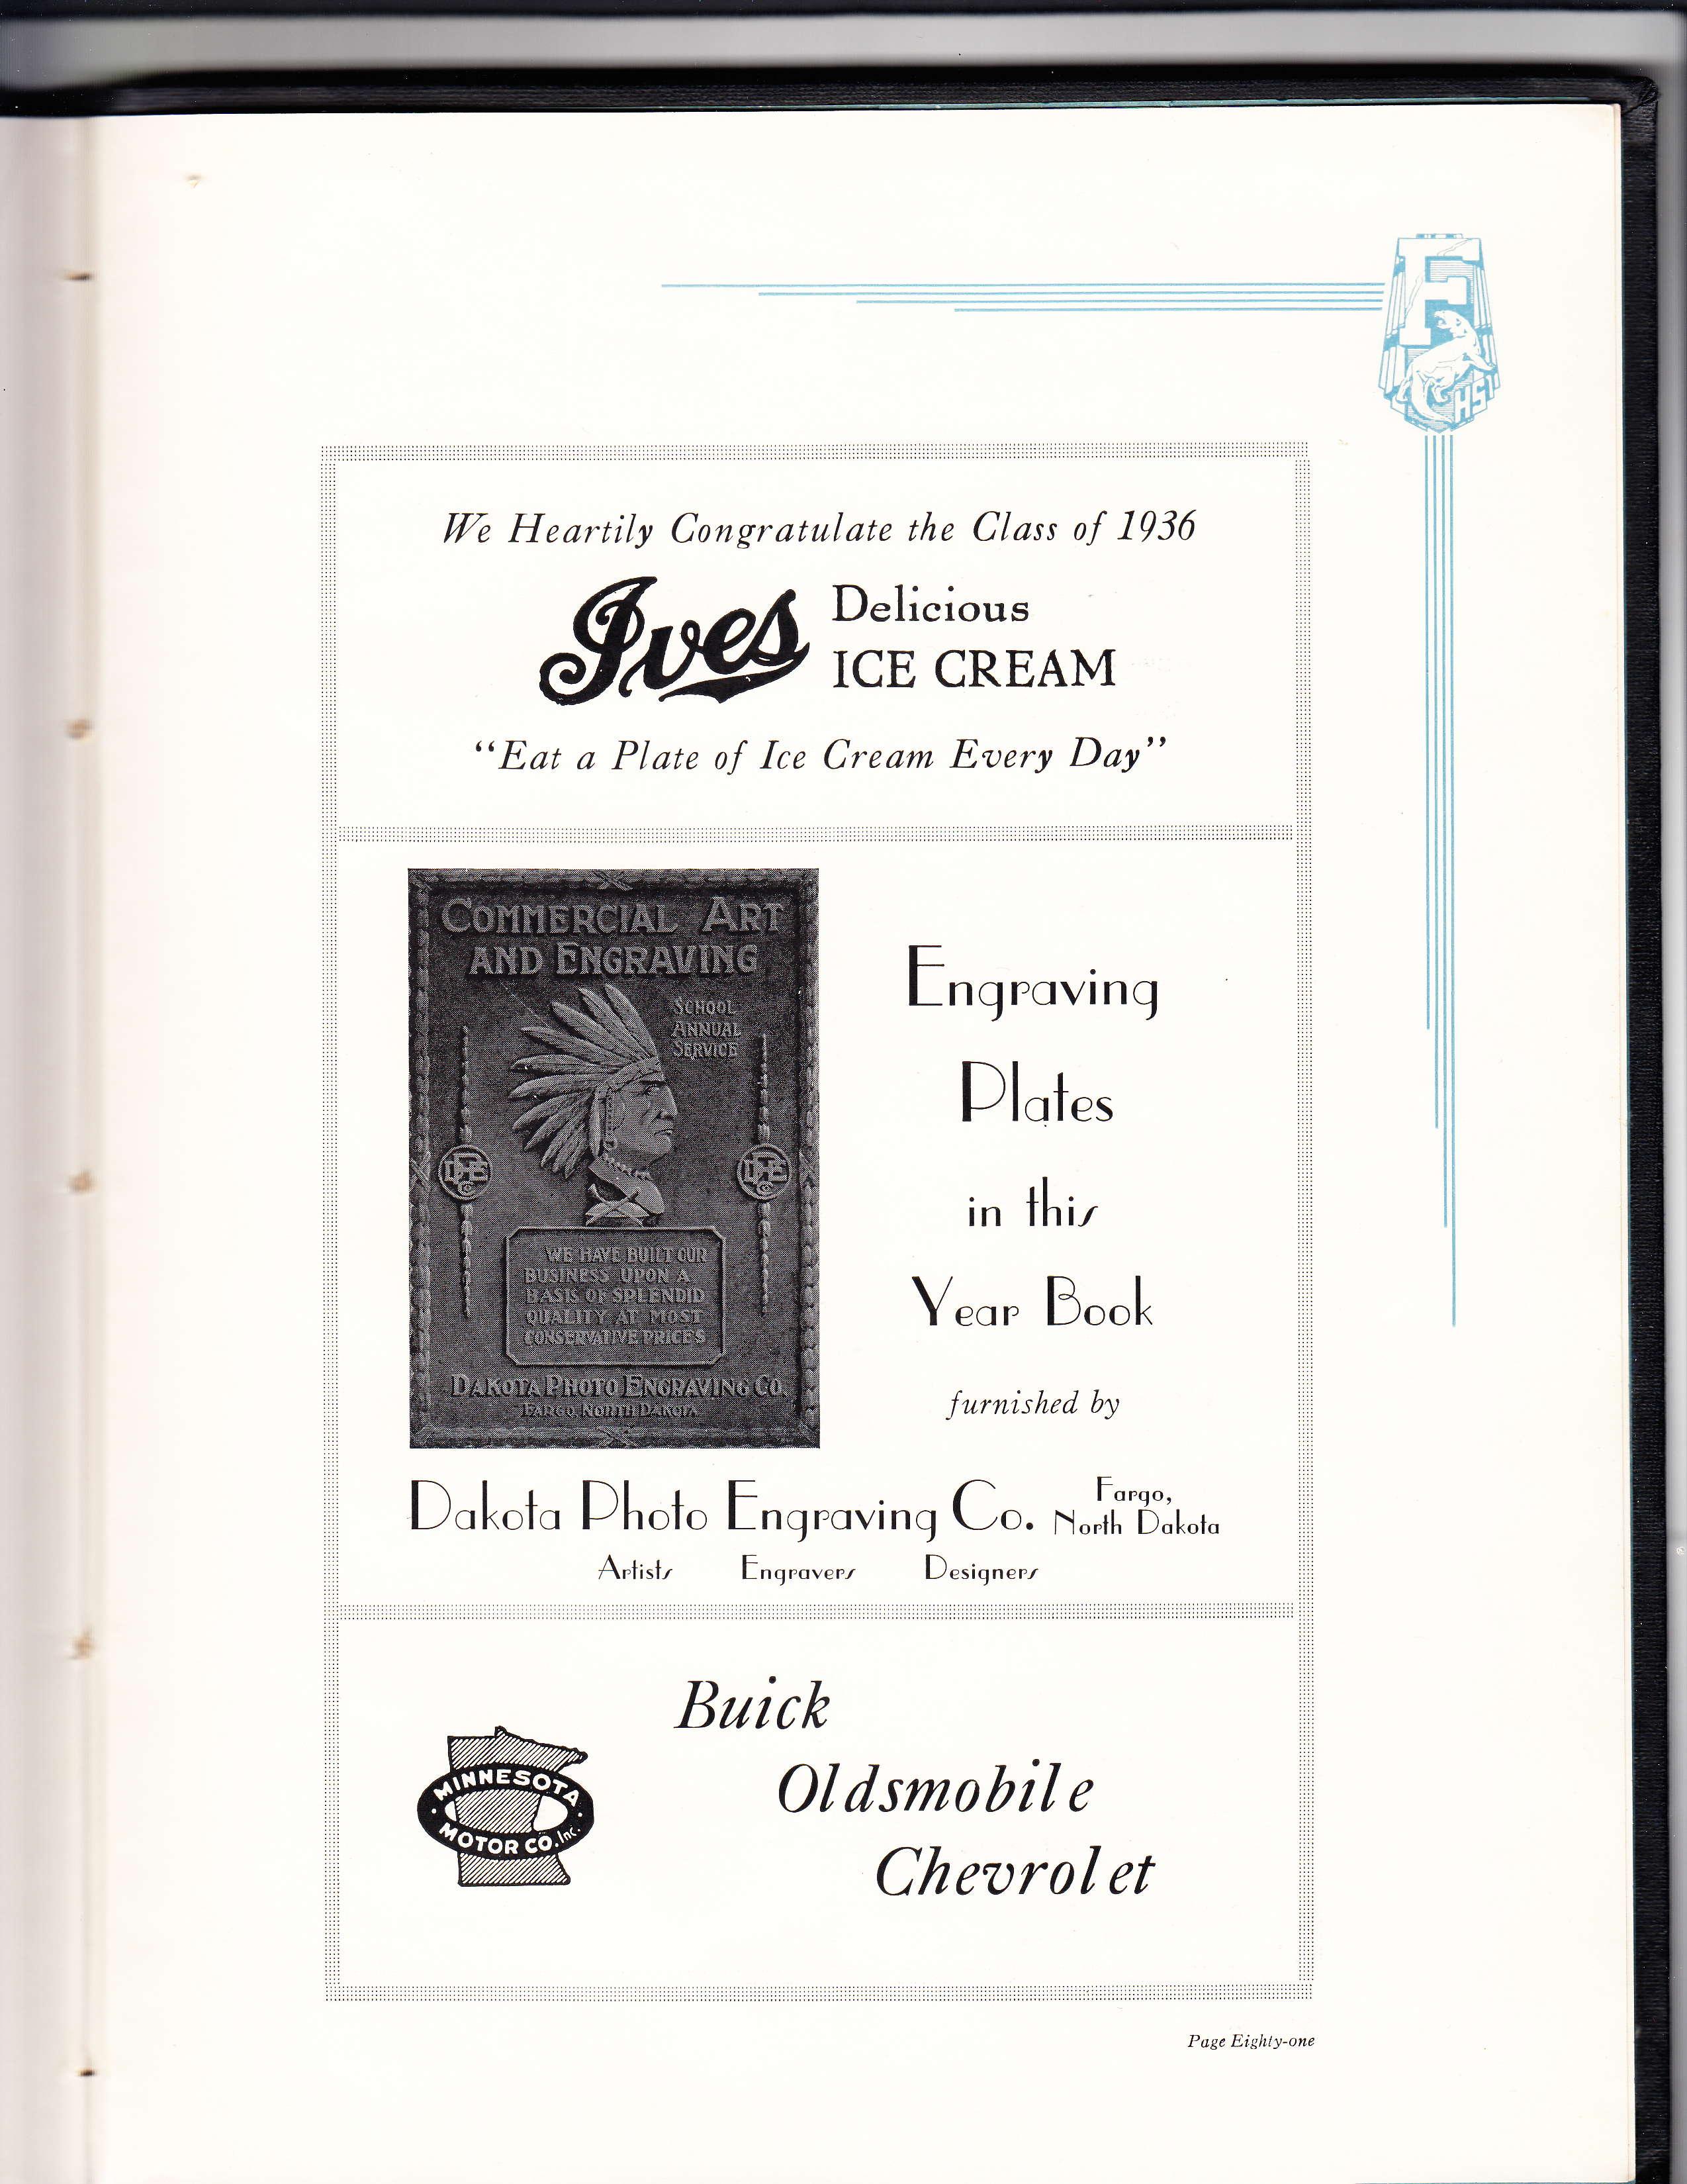 F
HS
We Heartily Congratulate the Class of 1936
Ives Delicious
ICE CREAM
"Eat a Plate of Ice Cream Every Day"
COMMERCIAL ART
AND ENGRAVING
SCHOOL
ANNUAL
SERVICE
DPE Co
DPE Co
WE HAVE BUILT OUR
BUSINESS UPON A
BASIS OF SPLENDID
QUALITY AT MOST
CONSERVATIVE PRICES
DAKOTA PHOTO ENGRAVING CO.
FARGO, NORTH DAKOTA
Engraving
Plates
in this
Year Book
furnished by
Dakota Photo Engraving Co. Fargo,
North Dakota
Artists Engravers Designers
MINNESOTA
MOTOR CO. Inc.
Buick
Oldsmobile
Chevrolet
Page Eighty-one